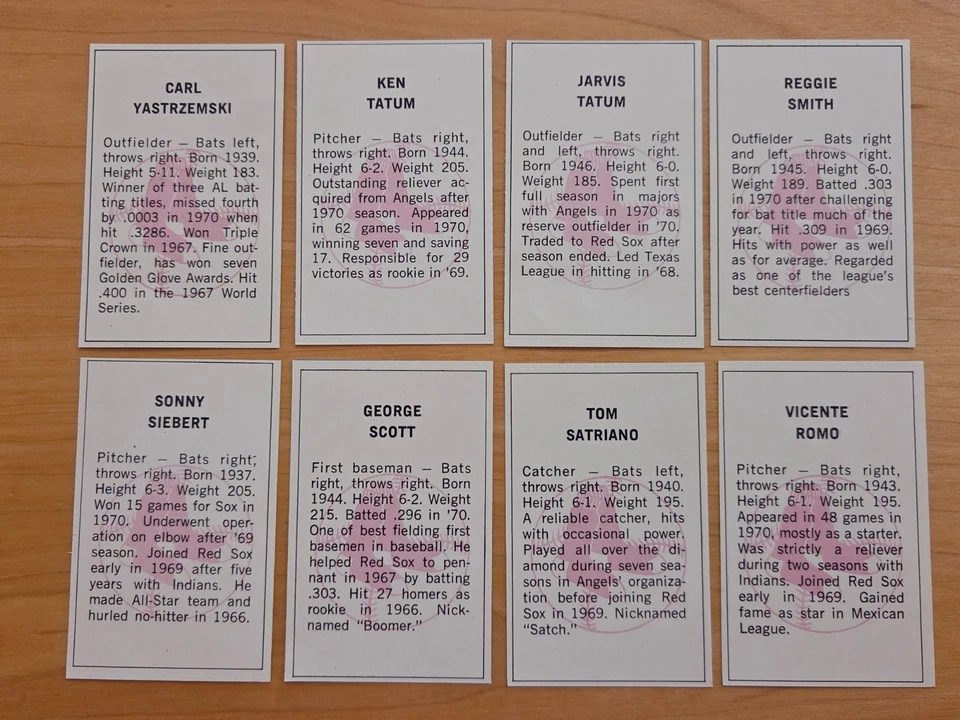 CARL
YASTRZEMSKI
Outfielder — Bats left,
throws right. Born 1939.
Height 5-11. Weight 183.
Winner of three AL bat-
ting titles, missed fourth
by .0003 in 1970 when
hit .3286. Won Triple
Crown in 1967. Fine out-
fielder, has won seven
Golden Glove Awards. Hit
.400 in the 1967 World
Series.
KEN
TATUM
Pitcher — Bats right,
throws right. Born 1944.
Height 6-2. Weight 205.
Outstanding reliever ac-
quired from Angels after
1970 season. Appeared
in 62 games in 1970,
winning seven and saving
17. Responsible for 29
victories as rookie in '69.
JARVIS
TATUM
Outfielder — Bats right
and left, throws right.
Born 1946. Height 6-0.
Weight 185. Spent first
full season majors
with Angels in 1970 as
reserve outfielder in '70.
Traded to Red Sox after
season ended. Led Texas
League in hitting in '68.
REGGIE
SMITH
Outfielder — Bats right
and left, throws right.
Born 1945. Height 6-0.
Weight 189. Batted .303
in 1970 after challenging
for bat title much of the
year. Hit .309 in 1969.
Hits with power as well
as for average. Regarded
as one of the league's
best centerfielders
SONNY
SIEBERT
Pitcher — Bats right,
throws right. Born 1937.
Height 6-3. Weight 205.
Won 15 games for Sox in
1970. Underwent oper-
ation on elbow after '69
season. Joined Red Sox
early in 1969 after five
years with Indians. He
made All-Star team and
hurled no-hitter in 1966.
GEORGE
SCOTT
First baseman — Bats
right, throws right. Born
1944. Height 6-2. Weight
215. Batted .296 in '70.
One of best fielding first
basemen in baseball. He
helped Red Sox to pen-
nant in 1967 by batting
.303. Hit 27 homers as
rookie in 1966. Nick-
named "Boomer."
TOM
SATRIANO
Catcher — Bats left,
throws right. Born 1940.
Height 6-1. Weight 195.
A reliable catcher, hits
with occasional power.
Played all over the di-
amond during seven sea-
sons in Angels' organiza-
tion before joining Red
Sox in 1969. Nicknamed
"Satch."
VICENTE
ROMO
Pitcher — Bats right,
throws right. Born 1943.
Height 6-1. Weight 195.
Appeared in 48 games in
1970, mostly as a starter.
Was strictly a reliever
during two seasons with
Indians. Joined Red Sox
early in 1969. Gained
fame as star in Mexican
League.